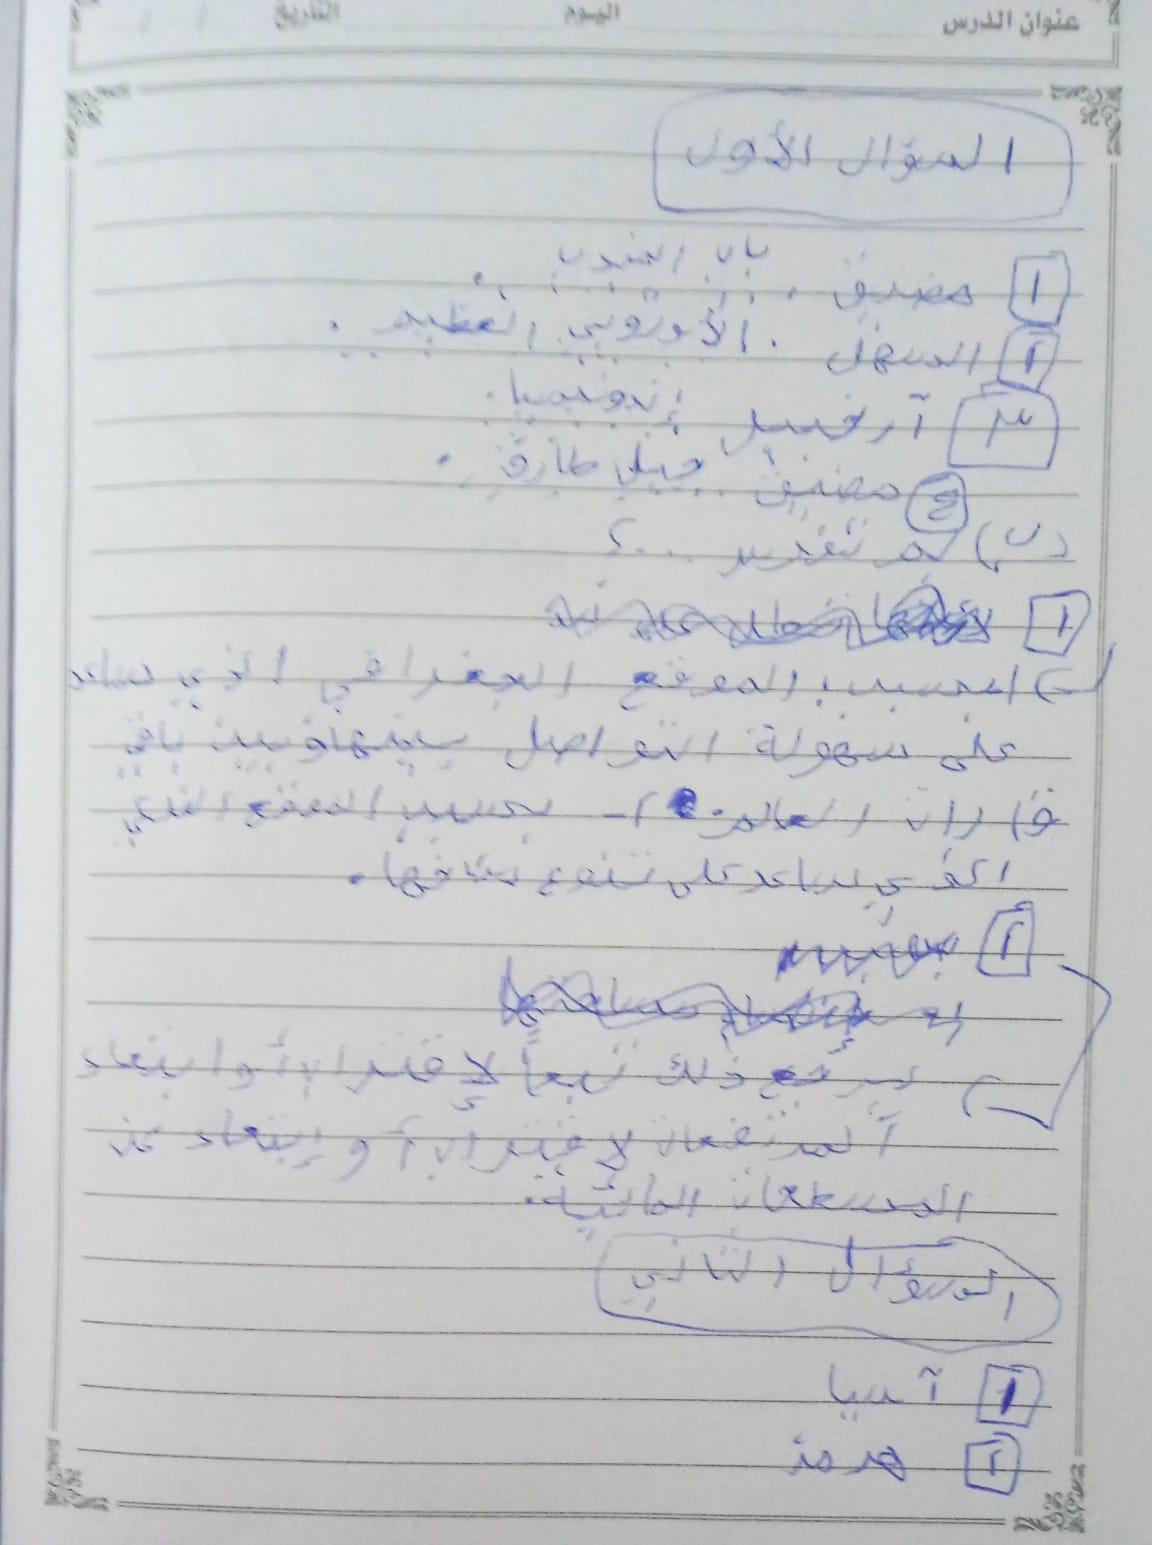 عنوان الدرس اليوم التاريخ / /
السؤال الأول
١ مضيق باب المندب.
٢ السهل الأوروبي العظيم.
٣ آرخبيل إندونيسيا.
٤ مضيق جبل طارق.
(ب) بم تفسر ...؟
١
١) بسبب الموقع الجغرافي الذي ساعد
على سهولة التواصل بينها وبين باقي
قارات العالم. ٢- بسبب الموقع الذي
الذي ساعد على تنوع مناخها.
٢
يرجع ذلك تبعاً لإقتراب أو ابتعاد
المرتفعات لإقتراب أو إبتعاد عن
المسطحات المائية.
السؤال الثاني
١ آسيا
٢ هرمز